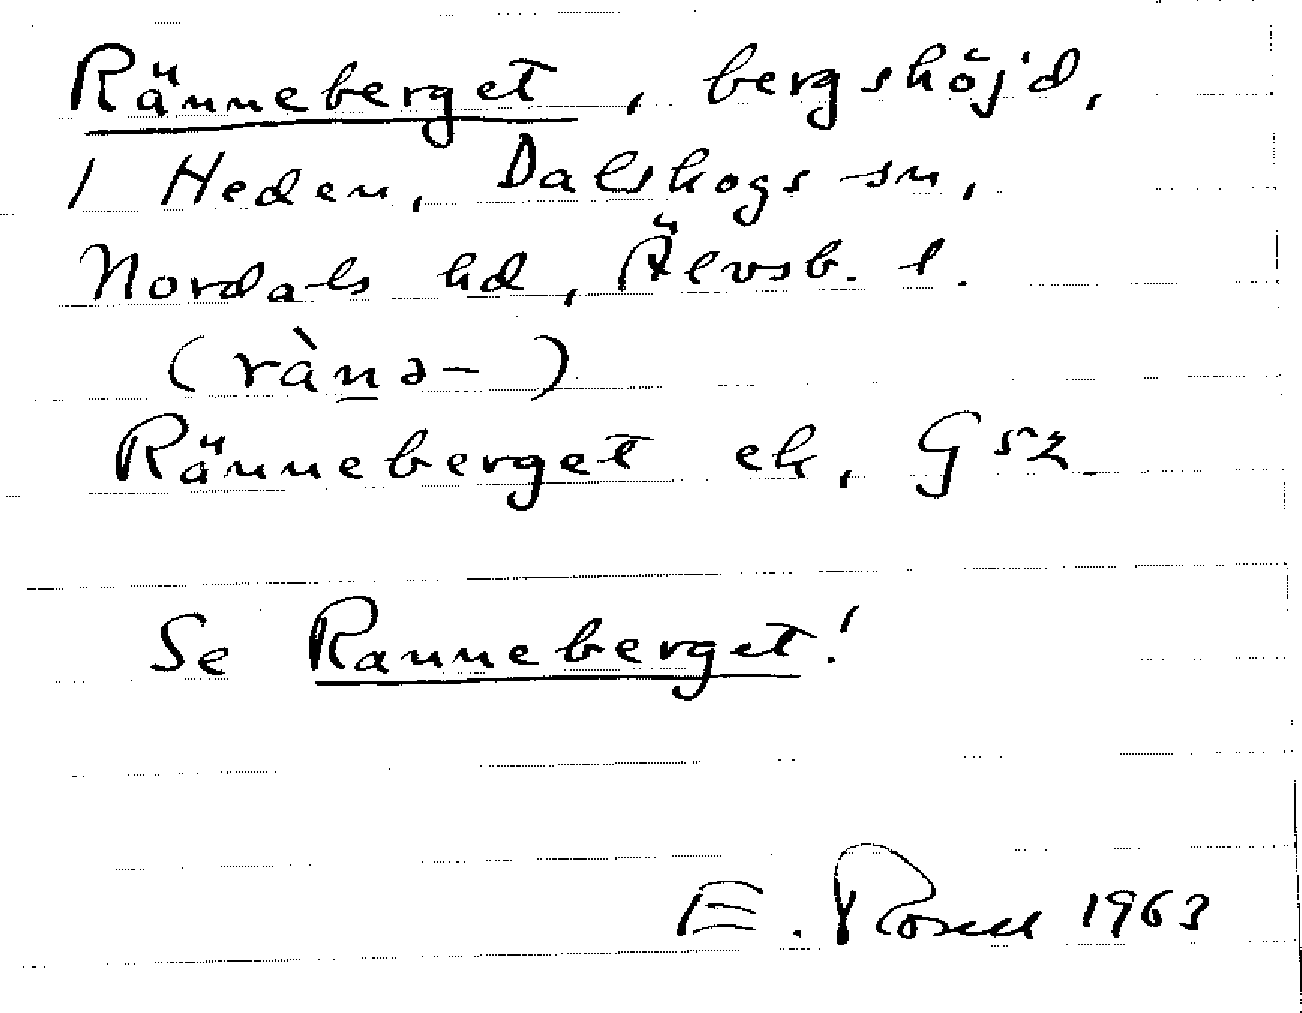 Ränneberget, bergshöjd,
1 Heden, Dalskogs sn,
Nordals hd, Älvsb. l.
(ràṉə-)
Ränneberget ek, G
Se Ranneberget!
E. Rosell 1963